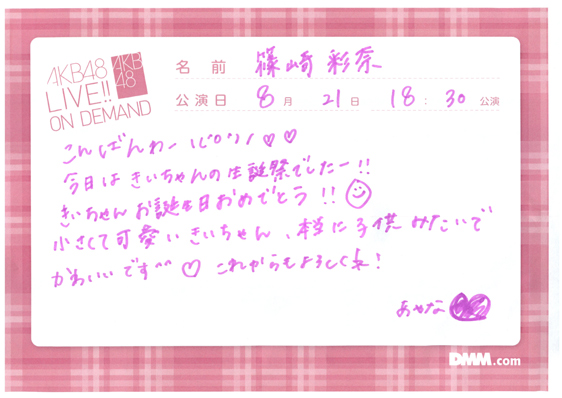 AKB48
LIVE!!
ON DEMAND
AKB
48
名前 篠崎彩奈
公演日 8月 21日 18:30公演
こんばんわー\(^o^)/♡♡
今日はきいちゃんの生誕祭でしたー!!
きいちゃんお誕生日おめでとう!!
小さくて可愛いきいちゃん、本当に子供みたいで
かわいいです^^♡ これからもよろしくね!
あやな
DMM.com